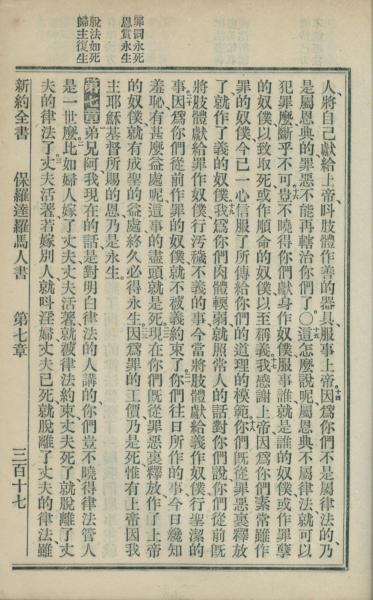 罪罰永死
恩賞永生
脫法如死
歸主復生
人將自己獻給上帝叫肢體作善的器具服事上帝因爲你們不是屬律法的乃
是屬恩典的罪惡不能再轄治你們了〇這怎麼說呢屬恩典不屬律法就可以
犯罪麼斷乎不可豈不曉得你們獻身作奴僕服事誰就是誰的奴僕或作罪孽
的奴僕以致取死或作順命的奴僕以至稱義我感謝上帝因爲你們素常雖作
罪的奴僕今已一心信服了所傳給你們的道理的模範你們既從罪惡裏釋放
了就作了義的奴僕我爲你們肉體輭弱就照常人的話對你們說你們從前既
將肢體獻給罪作奴僕行汚穢不義的事今當將肢體獻給義作奴僕行聖潔的
事因爲你們從前作罪的奴僕就不被義約束了你們往日所作的事今日纔知
羞恥有甚麼益處呢這事的盡頭就是死現在你們既從罪惡裏釋放作了上帝
的奴僕就有成聖的益處終久必得永生因爲罪的工價乃是死惟有上帝因我
主耶穌基督所賜的恩乃是永生
第七章弟兄阿我現在的話是對明白律法的人講的你們豈不曉得律法管人
是一世麼比如婦人嫁了丈夫丈夫活著就被律法約束丈夫死了就脫離了丈
夫的律法了丈夫活著若嫁別人就叫淫婦丈夫已死就脫離了丈夫的律法雖
新約全書 保羅達羅馬人書 第七章 三百十七